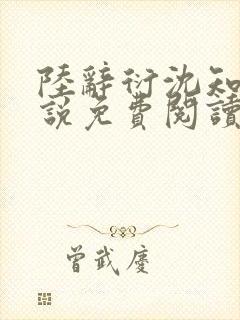 陸辭衍沈知
說免費閱讀
曾武慶